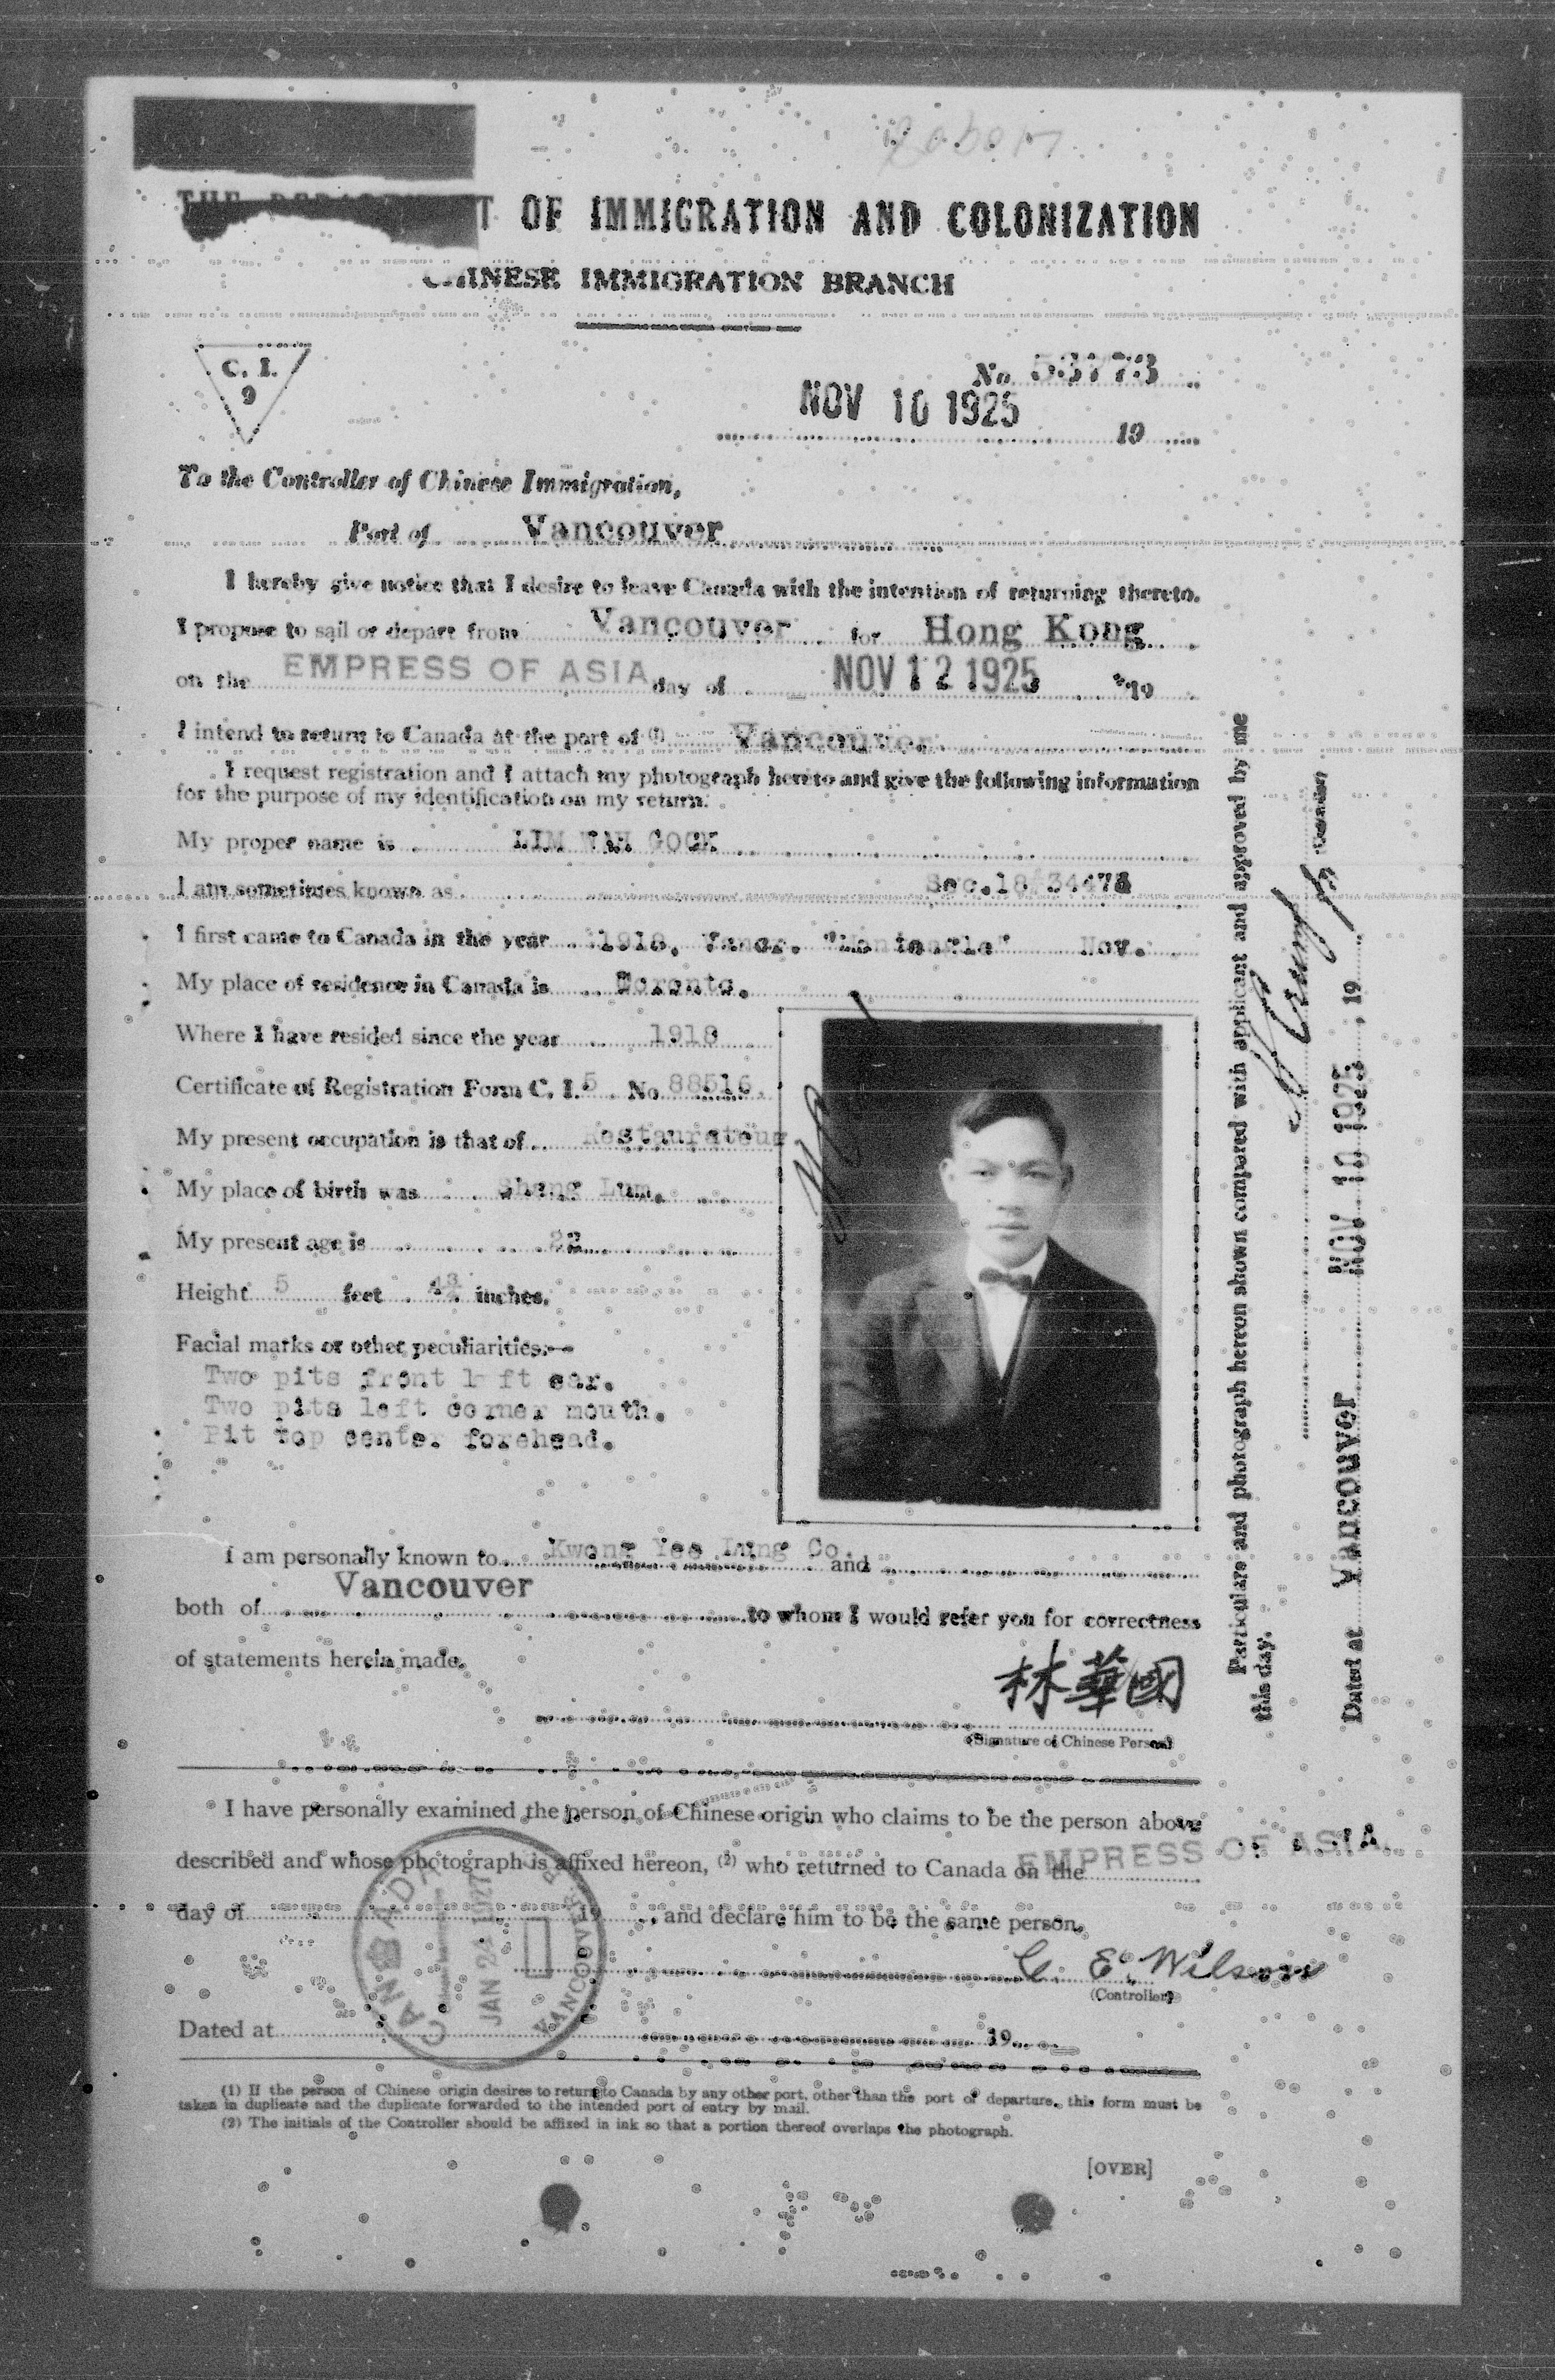 T OF IMMIGRATION AND COLONIZATION
CHINESE IMMIGRATION BRANCH
C. I.
9
No 53773
NOV 10 1925 19
To the Controller of Chinese Immigration,
Port of Vancouver
I hereby give notice that I desire to leave Canada with the intention of returning thereto.
I propose to sail or depart from Vancouver for Hong Kong
on the EMPRESS OF ASIA day of NOV 12 1925 19
I intend to return to Canada at the port of (1) Vancouver
I request registration and I attach my photograph hereto and give the following information
for the purpose of my identification on my return.
My proper name is LIM WAH GOCK
I am sometimes known as Sec.18
I first came to Canada in the year 1918, Vancr. "Monteagle" Nov.
My place of residence in Canada is Toronto.
Where I have resided since the year 1918
Certificate of Registration Form C. I. 5 No 88516.
My present occupation is that of Restaurateur
My place of birth was Shang Lum.
My present age is 22
Height 5 feet 4¾ inches.
Facial marks or other peculiarities:—
Two pits front left ear.
Two pits left corner mouth.
Pit top center forehead.
I am personally known to Kwong Yee Lung Co. and
both of Vancouver to whom I would refer you for correctness
of statements herein made.
林華國
(Signature of Chinese Person)
Particulars and photograph hereon shown compared with applicant and approved by me
this day.
Controller
Dated at Vancouver NOV 10 1925 19
I have personally examined the person of Chinese origin who claims to be the person above
described and whose photograph is affixed hereon, (2) who returned to Canada on the EMPRESS OF ASIA.
day of 19 , and declare him to be the same person.
CANADA
JAN 24 1927
VANCOUVER
G. E. Wilson
(Controller)
Dated at 19
(1) If the person of Chinese origin desires to return to Canada by any other port, other than the port of departure, this form must be
taken in duplicate and the duplicate forwarded to the intended port of entry by mail.
(2) The initials of the Controller should be affixed in ink so that a portion thereof overlaps the photograph.
[OVER]